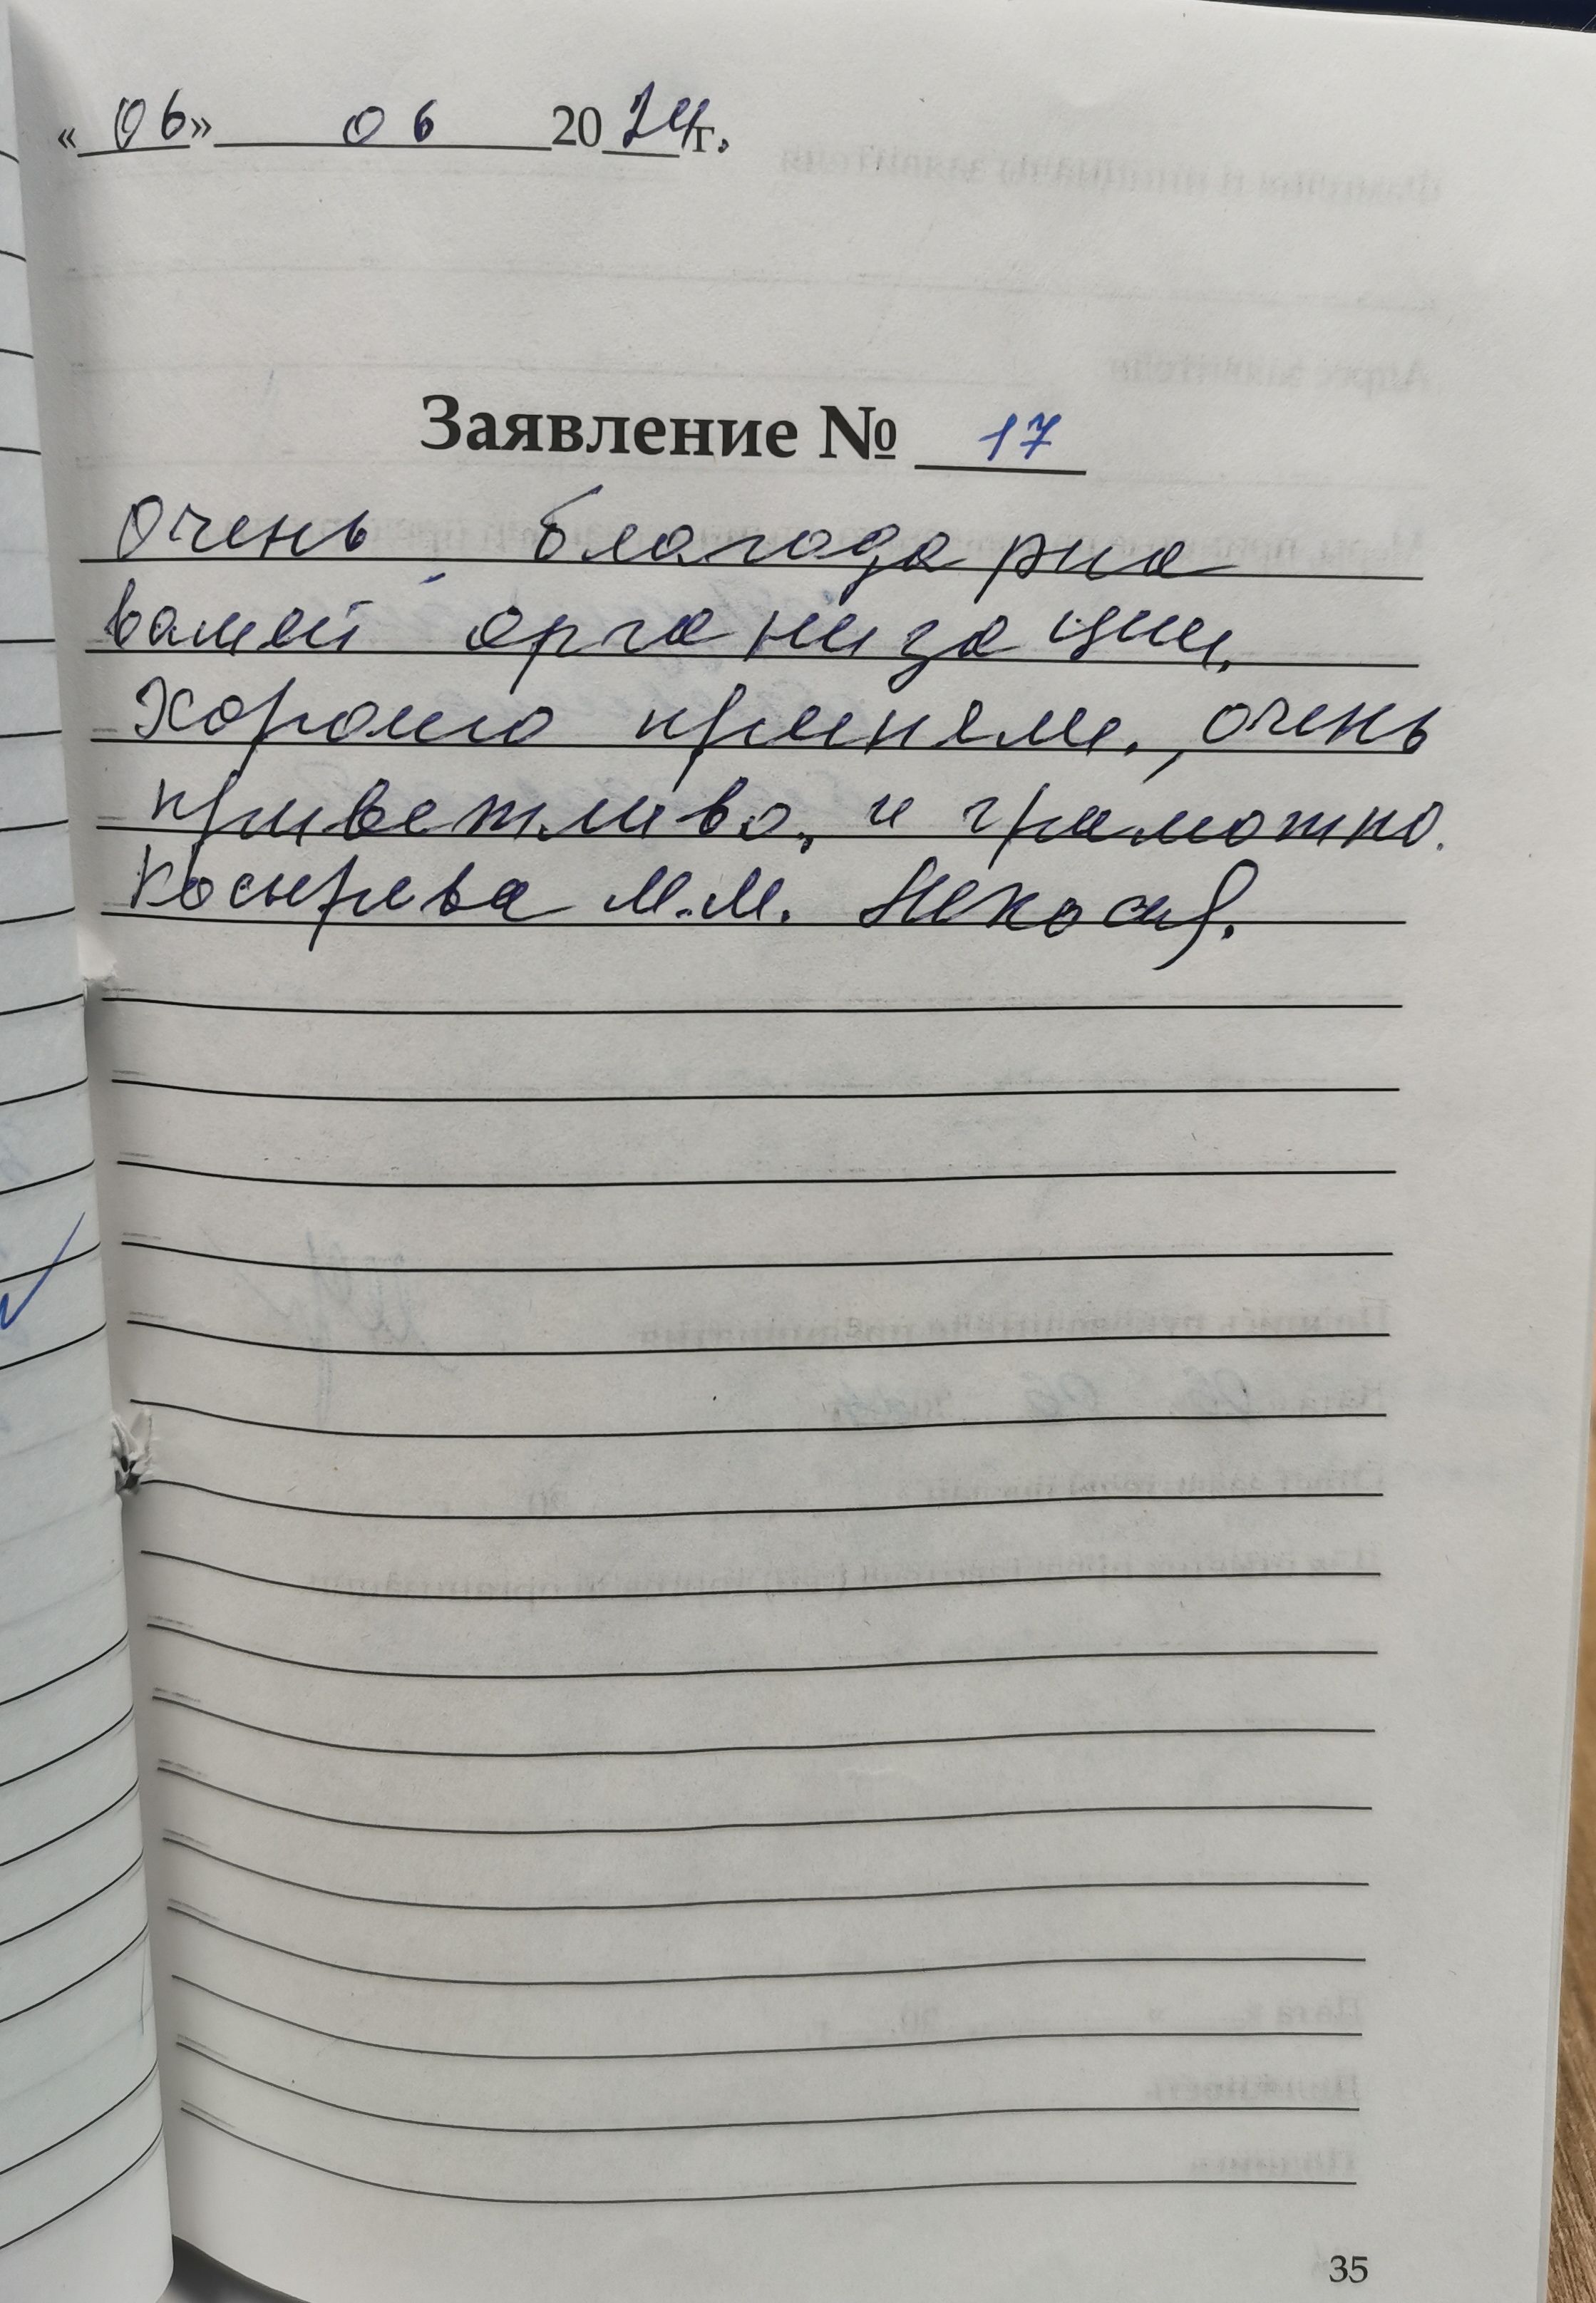 «06» 06 2024г.
Заявление № 17
Очень благодарна
вашей организации.
Хорошо приняли, очень
приветливо, и грамотно.
Косырева М.М.
35